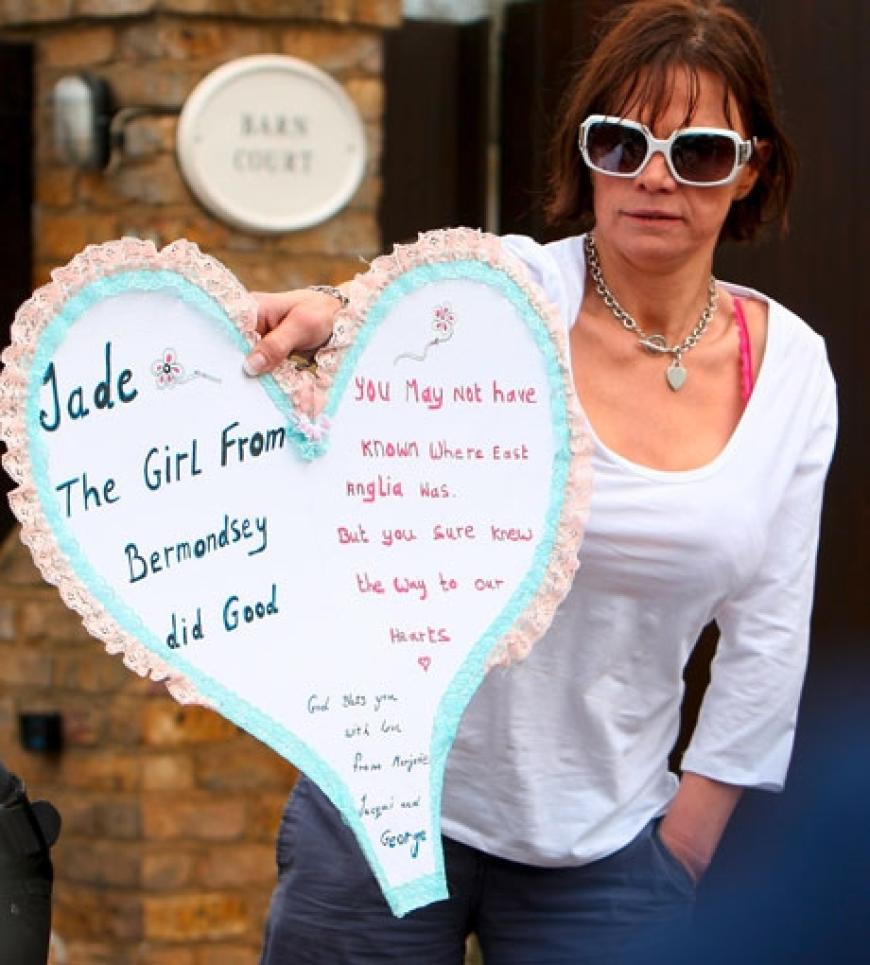 BARN
COURT
Jade
The Girl From
Bermondsey
did Good
YOU May Not have
KNOWN Where East
Anglia Was.
But you sure knew
the way to our
Hearts
God Bless you
with love
from Marjorie
Jacqui and
George